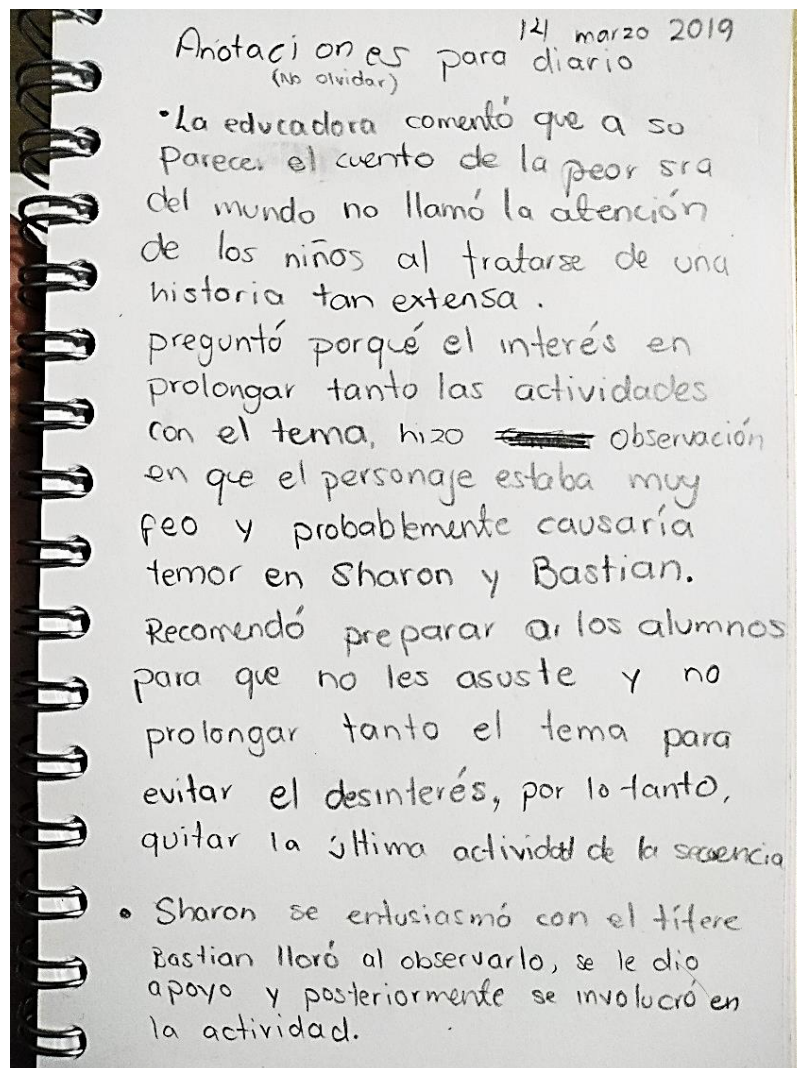 14 marzo 2019
Anotaciones para diario
(No olvidar)
• La educadora comentó que a su
parecer el cuento de la peor sra
del mundo no llamó la atención
de los niños al tratarse de una
historia tan extensa.
preguntó porqué el interés en
prolongar tanto las actividades
con el tema, hizo observación
en que el personaje estaba muy
feo y probablemente causaría
temor en Sharon y Bastian.
Recomendó preparar a los alumnos
para que no les asuste y no
prolongar tanto el tema para
evitar el desinterés, por lo tanto,
quitar la última actividad de la secuencia
• Sharon se entusiasmó con el títere
Bastian lloró al observarlo, se le dio
apoyo y posteriormente se involucró en
la actividad.